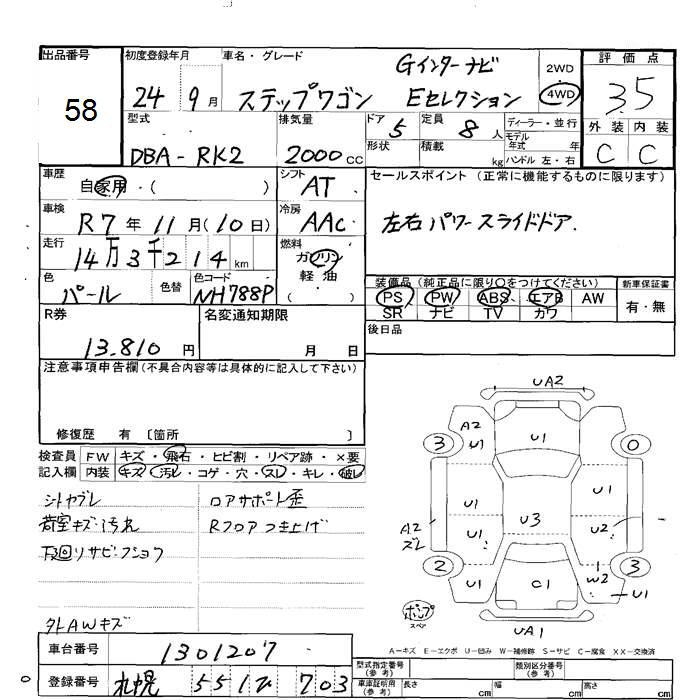 出品番号
58
初度登録年月
24 9月
車名・グレード
ステップワゴン
Gインターナビ
Eセレクション
2WD
4WD
評価点
3.5
外装 内装
C C
型式
DBA-RK2
排気量
2000CC
ドア 5
形状
定員 8人
積載 kg
ディーラー・並行
モデル年式 年
ハンドル 左・右
車歴
自家用・( )
シフト
AT
セールスポイント (正常に機能するものに限ります)
左右パワースライドドア.
車検
R7年11月(10日)
冷房
AAC
走行
14万3千214km
燃料
ガソリン
軽油
( )
色
パール
色替
色コード
NH788P
装備品(純正品に限り○をつけてください)
PS PW ABS エアB AW
SR ナビ TV カワ
新車保証書
有・無
R券
13,810円
名変通知期限
月 日
後日品
注意事項申告欄(不具合内容等は具体的に記入して下さい)
修復歴 有 〔箇所 〕
検査員記入欄
FW キズ・飛石・ヒビ割・リペア跡・×要
内装 キズ・汚レ・コゲ・穴・スレ・キレ・破レ
シートヤブレ
荷室キズ・汚れ
下廻リサビ・フショク
外AWキズ
ロアサポート歪
Rフロアつき上げ
UA2
A2
U1
U1
3
0
U1
U1
A2
ズレ
U1
U3
U2
2
3
U1
C1
W2
U1
UA1
ポンプ
スペア
A-キズ E-エクボ U-凹み W-補修跡 S-サビ C-腐食 XX-交換済
車台番号
1301207
登録番号
札幌 551ひ703
型式指定番号(参考)
類別区分番号(参考)
車庫証明用(参考)
長さ cm
幅 cm
高さ cm